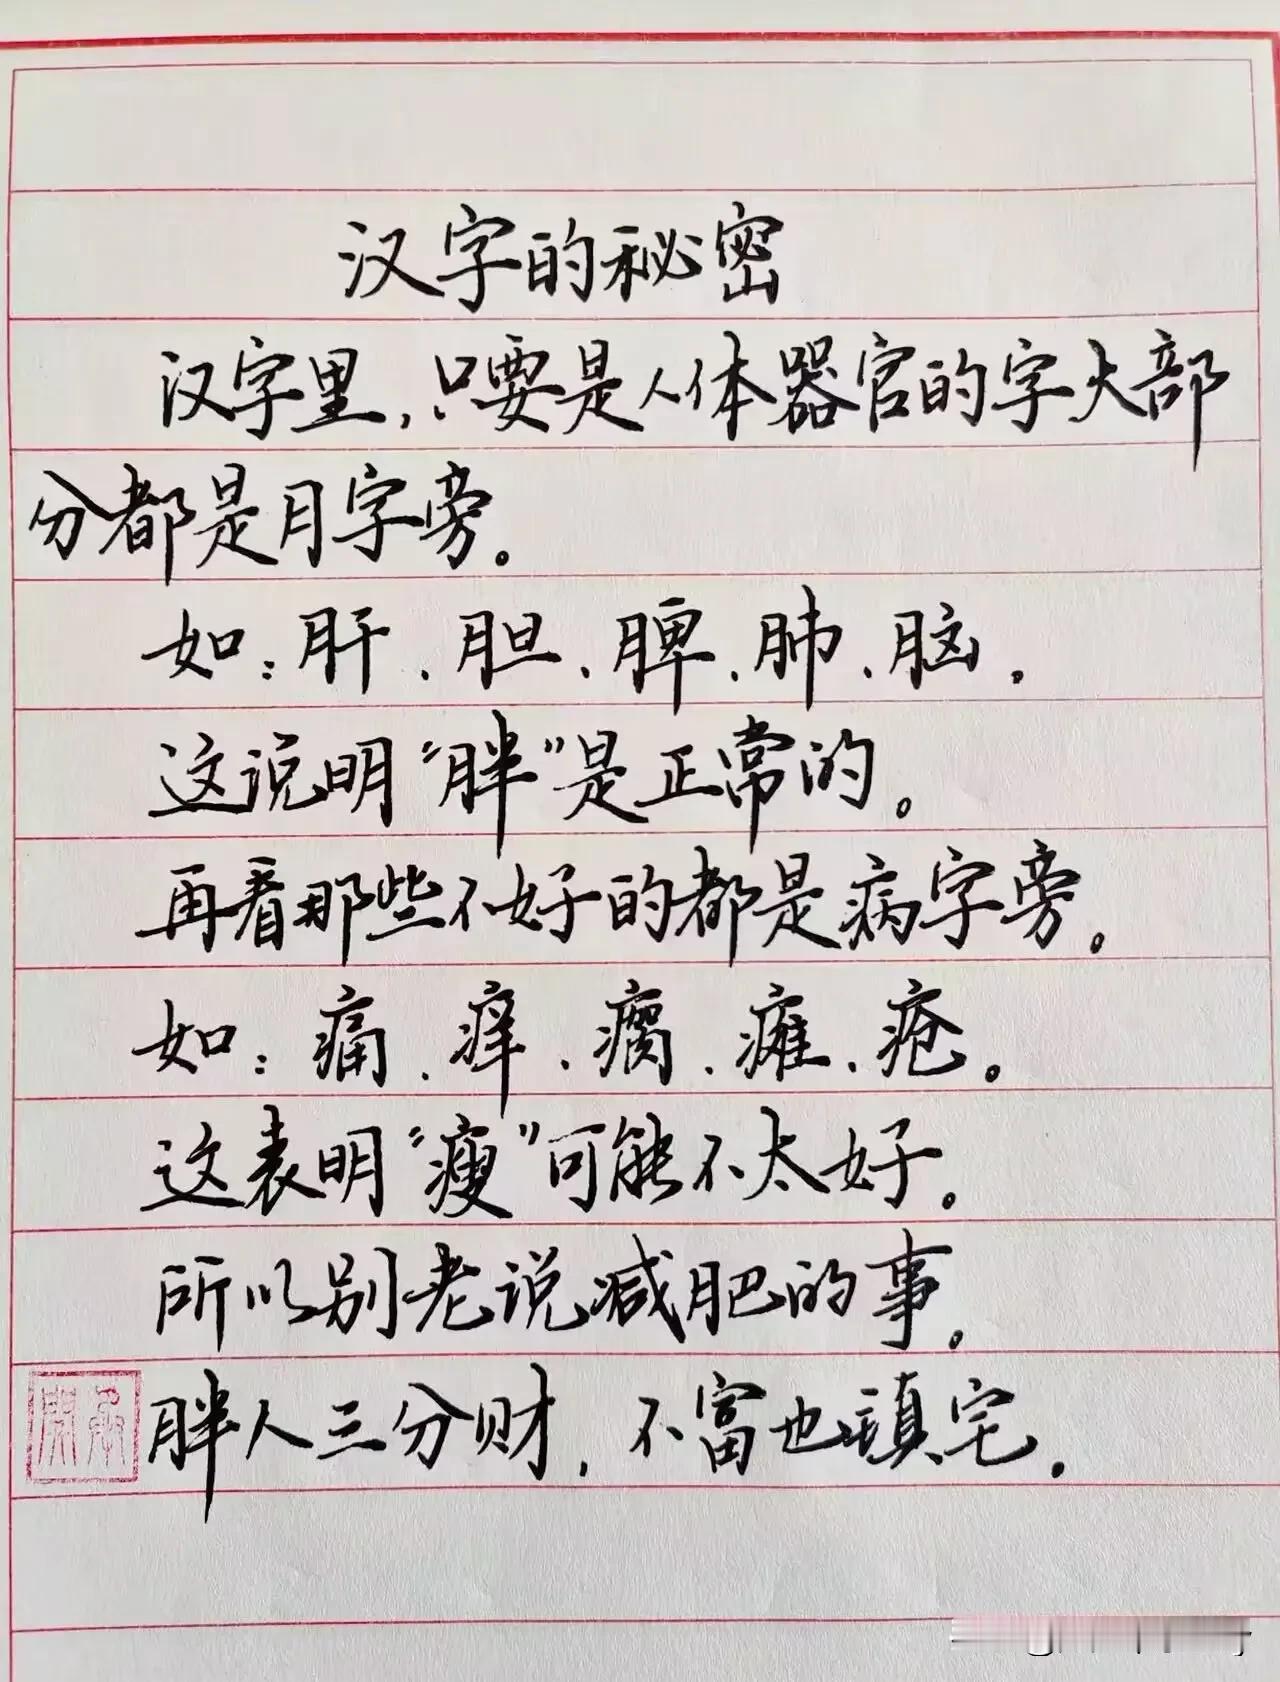 汉字的秘密
汉字里,只要是人体器官的字大部
分都是月字旁。
如:肝、胆、脾、肺、脑。
这说明“胖”是正常的。
再看那些不好的都是病字旁。
如:痛、痒、瘸、瘫、疮。
这表明“瘦”可能不太好。
所以别老说减肥的事。
胖人三分财,不富也镇宅。